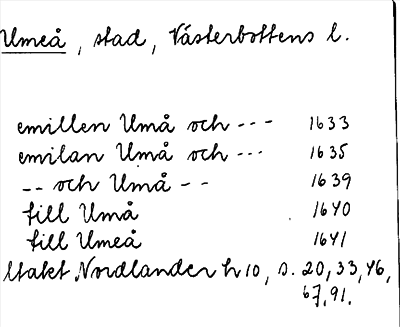 Umeå, stad, Västerbottens l.
emillen Umå och --- 1633
emilan Umå och --- 1635
-- och Umå -- 1639
till Umå 1640
till Umeå 1641
Utakt Nordlander h 10, s. 20, 33, 46,
67, 91.